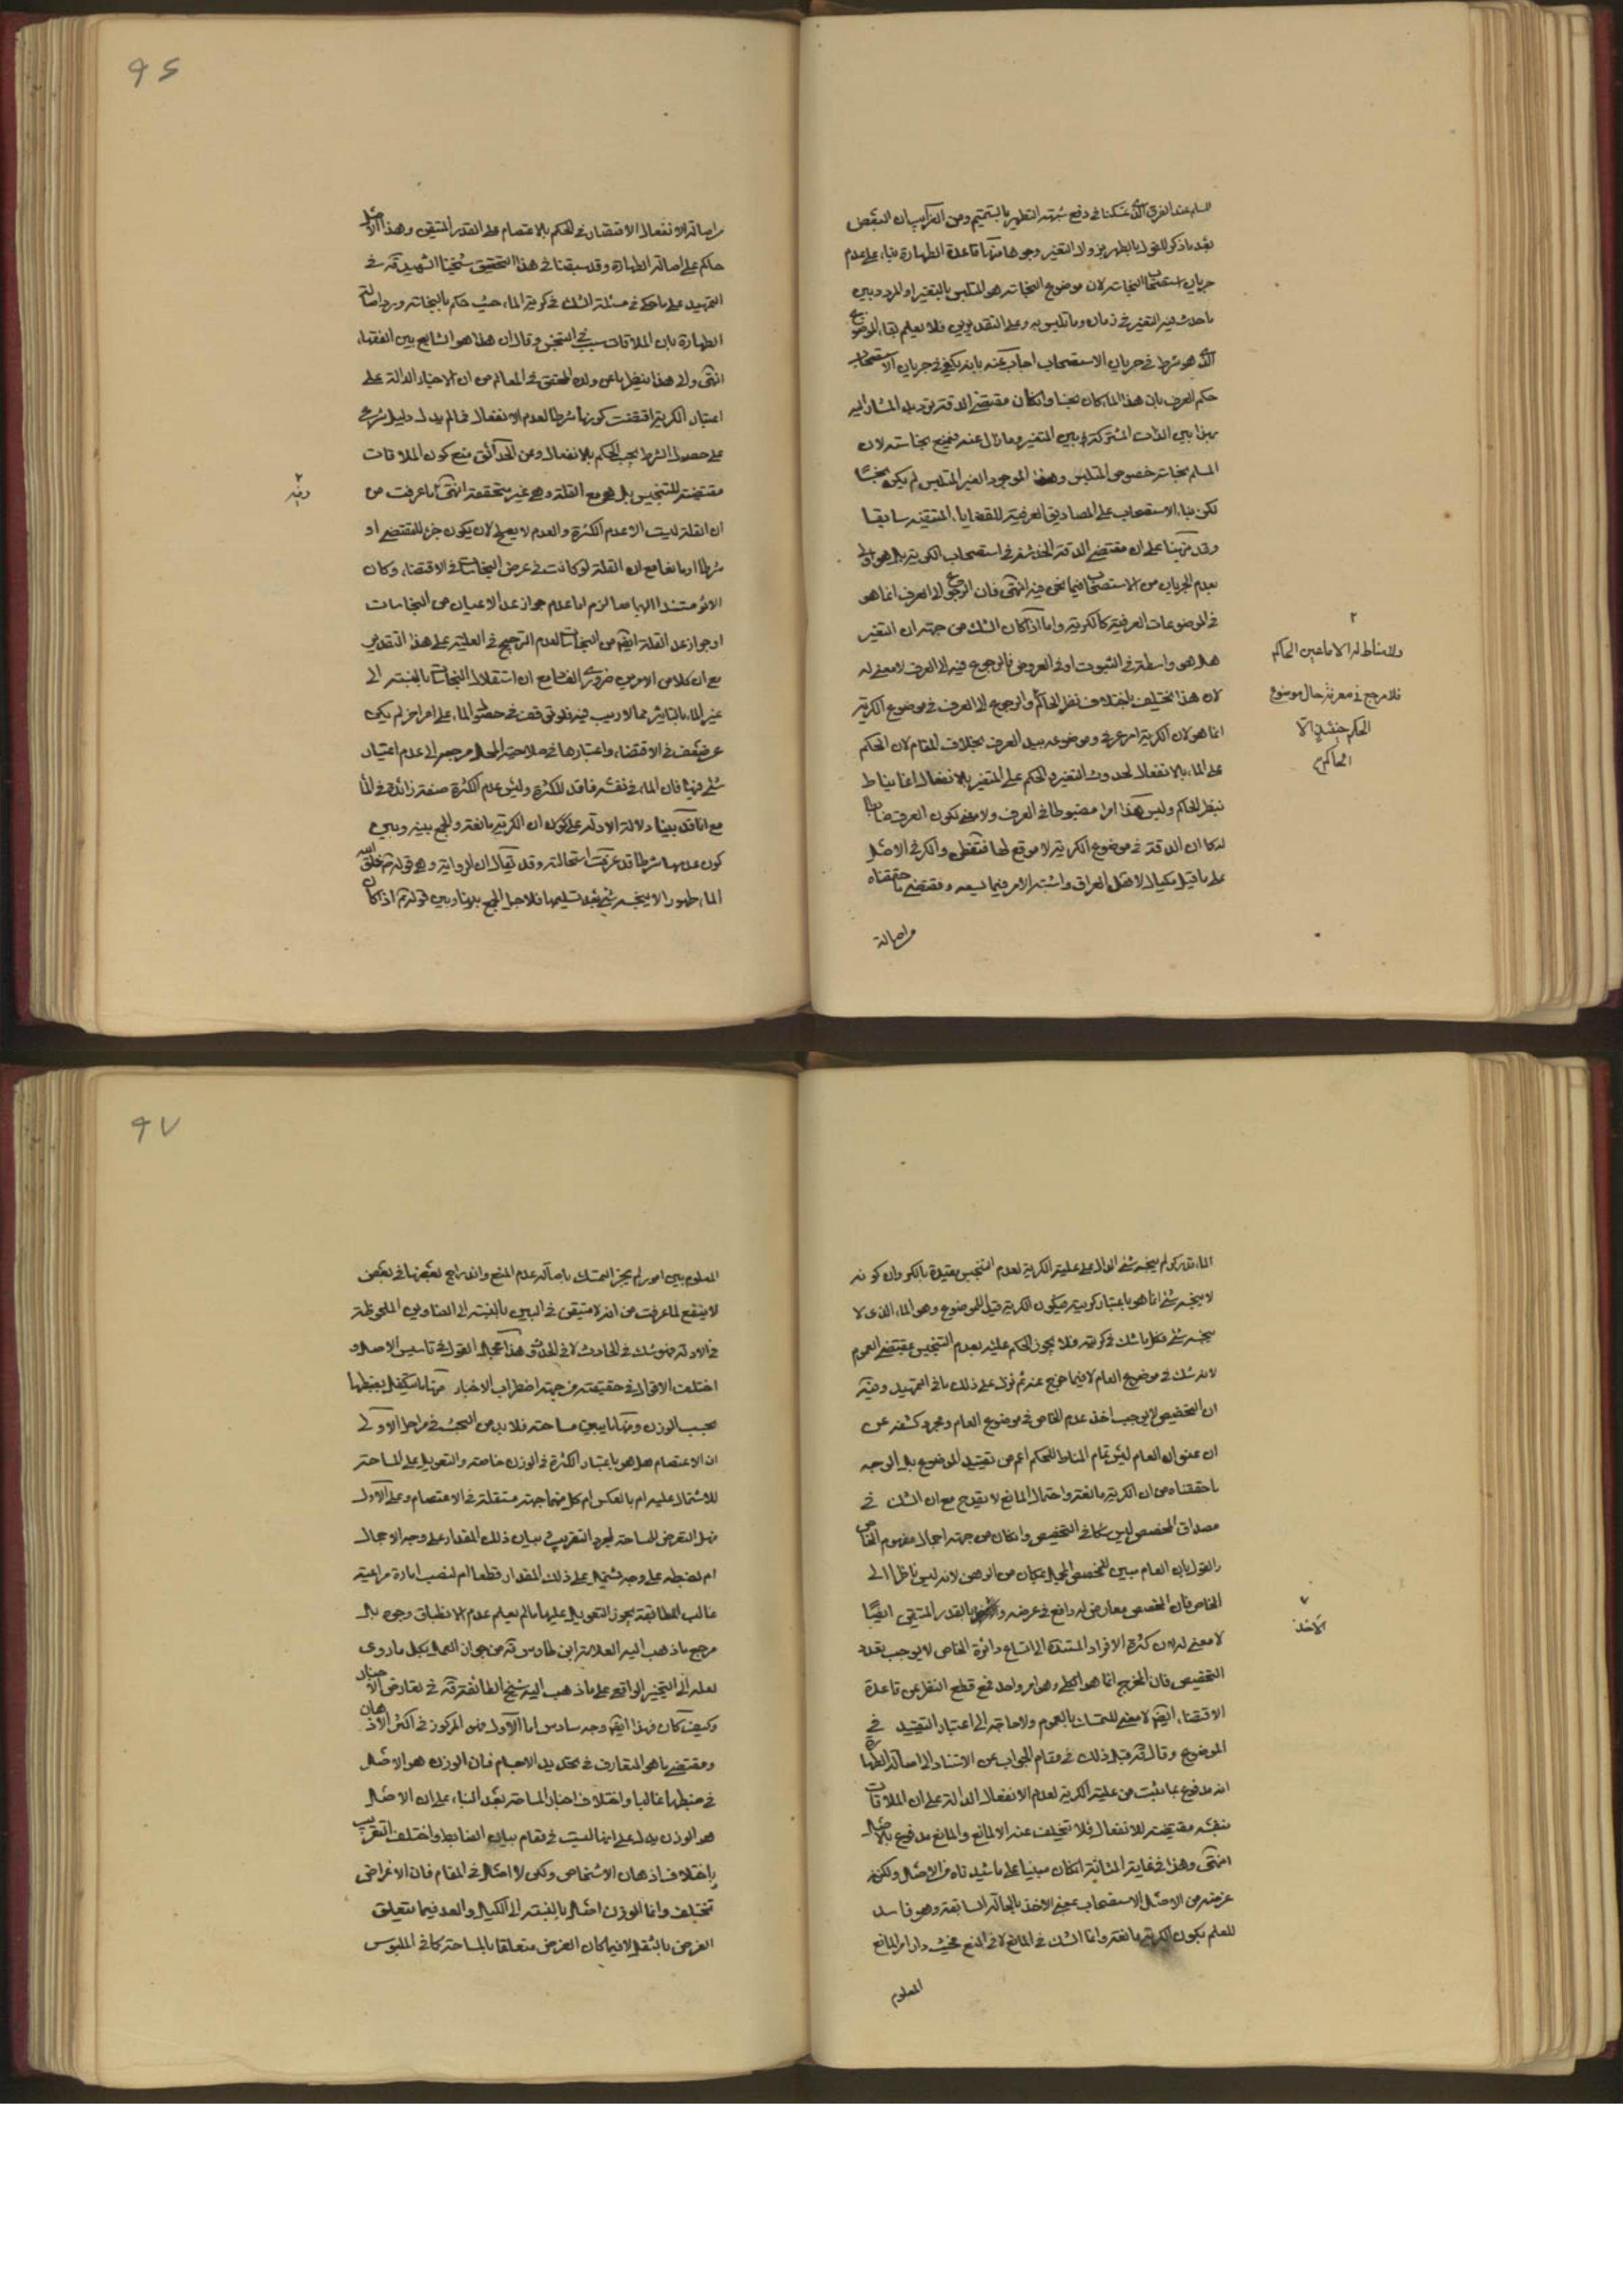 المسلم عند الفرق الذي تمسكنا في دفع شبهة التطهير بالتتميم ومن الغرايب ان البعض
بعد ما ذكر للقول بالطهر بزوال التغير وجوها منها قاعدة الطهارة بناء على عدم
جريان استصحاب النجاسة لان موضوع النجاسة هو المتلبس بالتغير او المردد بين
ما حدث فيه التغير في زمان وما تلبس به وعلى التقديرين فلا يعلم بقاء الموضوع
الذي هو شرط في جريان الاستصحاب اجاب عنه بانه يكفي في جريان الاستصحاب
حكم العرف بان هذا الماء كان نجسا وان كان مقتضى الدقة ترديد المشار اليه
بهذا بين الذات المشتركة بين المتغير وما زال عنه فنمنع نجاسته لان
المسلم نجاسة خصوص المتلبس وهذا الموجود الغير المتلبس لم يكن نجسا
لكن بناء الاستصحاب على المصاديق العرفية للقضايا المتيقنة سابقا
وقد نبهنا على ان مقتضى الدقة في استصحاب الكرية بل هو اولى
بعدم الجريان من الاستصحاب فيما نحن فيه انتهى فان الرجوع الى العرف انما هو
في الموضوعات العرفية كالكرية واما اذا كان الشك من جهة ان التغير
هل هو واسطة في الثبوت او في العروض فالرجوع فيه الى العرف لا معنى له
لان هذا يختلف باختلاف نظر الحاكم والرجوع الى العرف في موضوع الكرية
انما هو لان الكرية امر عرفي وموضوعه بيد العرف بخلاف المقام لان الحكم
على الماء بالانفعال لحدوث التغير والحكم على المتغير بالانفعال انما يناط
بنظر الحاكم وليس هذا امرا مضبوطا في العرف ولا معنى لكون العرف ضابطا
له كما ان الدقة في موضوع الكرية لا موقع لها فتفطن والكر في الاصل
على ما قيل مكيال لاهل العراق واشتبه الامر فيما يسعه ومقتضى ما حققناه
واصالة
ولا مناط له الا ما عين الحاكم
فلا مرجع في معرفة حال موضوع
الحكم حينئذ الا
الحاكم
٩٦
واصالة الانفعال الاقتصار في الحكم بالاعتصام على القدر المتيقن وهذا الاصل
حاكم على اصالة الطهارة وقد سبقنا في هذا التحقيق شيخنا الشهيد في
التمهيد على ما حكي في مسئلة الشك في كرية الماء حيث حكم بالنجاسة ورد اصالة
الطهارة بان الملاقات سبب في التنجس وقال ان هذا هو الشايع بين الفقهاء
انتهى والى هذا ينظر ما عن ولده المحقق في المعالم من ان الاخبار الدالة على
اعتبار الكرية اقتضت كونها شرطا لعدم الانفعال فما لم يدل دليل شرعي
على حصول الشرط يجب الحكم بالانفعال وعن الحدائق منع كون الملاقات
مقتضية للتنجيس بل هو مع القلة وهي غير متحققة انتهى ما عرفت من
ان القلة ليست الا عدم الكثرة والعدم لا يصلح لان يكون جزء للمقتضي او
شرطا او مانعا مع ان القلة لو كانت في عرض النجاسات في الاقتضاء وكان
الاثر مستندا اليها معا لزم اما عدم جواز عد الاعيان من النجاسات
او جواز عد القلة ايضا من النجاسات لعدم الترجيح في العلية على هذا التقدير
مع ان كلا من الامرين ضروري الفساد مع ان استقلال النجاسات بالنسبة الى
غير الماء بالتاثير مما لا ريب فيه فلو توقف في خصوص الماء على امر اخر لم يكن
عرضيته في الاقتضاء واعتبارها في صلاحية المحل مرجعه الى عدم اعتبار
شيء فيها فان الماء في نفسه فاقد للكثرة وليس عدم الكثرة صفة زائدة في الماء
مع انا قد بينا دلالة الادلة على كون ان الكرية مانعة والجمع بينه وبين
كون عدمها شرطا قد عرفت استحالته وقد يقال ان الرواية وهي قوله خلق الله
الماء طهورا لا ينجسه شيء بعد تسليمها فلاجل الجمع بينها وبين قوله اذا كان
وفيه
الماء قدر كر لم ينجسه شيء الدال على علية الكرية لعدم التنجيس مقيدة بالكر وان كونه
لا ينجسه شيء انما هو باعتبار كريته فيكون الكرية قيدا للموضوع وهو الماء الذي لا
ينجسه شيء فكلما شك في كريته فلا يجوز الحكم عليه بعدم التنجيس بمقتضى العموم
لانه شك في موضوع العام لا فيما خرج عنه ثم فرع على ذلك ما في التمهيد وفيه
ان التخصيص لا يوجب اخذ عدم الخاص في موضوع العام ومجرد كشفه عن
ان عنوان العام ليس تمام المناط للحكم اعم من تقييد الموضوع بل الوجه
ما حققناه من ان الكرية مانعة واحتمال المانع لا يقدح مع ان الشك في
مصداق المخصص ليس شكا في التخصيص وان كان من جهة اجمال مفهوم الخاص
والقول بان العام مبين للمخصص المجمل بمكان من الوهن لانه ليس ناظرا الى
الخاص فان المخصص معارض له دافع في عرضه والاخذ بالقدر المتيقن ايضا
لا معنى له لان كثرة الافراد المستندة الى اتساع دائرة الخاص لا يوجب تعدد
التخصيص فان المخرج انما هو الكلي وهو امر واحد نعم مع قطع النظر عن قاعدة
الاقتضاء ايضا لا معنى للتمسك بالعموم ولا حاجة الى اعتبار التقييد في
الموضوع وقال قبل ذلك في مقام الجواب عن الاستناد الى اصالة الطهارة
انه مدفوع بما ثبت من علية الكرية لعدم الانفعال الدالة على ان الملاقات
بنفسه مقتضية للانفعال فلا تختلف عنه الا لمانع والمانع مدفوع بالاصل
انتهى وهذا في غاية المتانة ان كان مبنيا على ما شيدناه من الاصل ولكن
غرضه من الاصل الاستصحاب بمعنى الاخذ بالحالة السابقة وهو فاسد
للعلم بكون الكرية مانعة وانما الشك في المانع لا في المنع فحيث دار امر المانع
المعلوم
الاخذ
٩٧
المعلوم بين امور لم يجز التمسك باصالة عدم المنع واندراج بعضها في بعض
لا ينفع لما عرفت من انه لا متيقن في البين بالنسبة الى العناوين الملحوظة
في الادلة فهو شك في الحادث لا في الحدوث هذا مجمل القول في تاسيس الاصل و
اختلف الاقوال في حقيقته من جهة اضطراب الاخبار منها ما يتكفل بضبطها
بحسب الوزن ومنها ما يبين مساحته فلا بد من البحث في مراحل الاولى
ان الاعتصام هل هو باعتبار الكثرة في الوزن خاصة والتعويل على المساحة
للاشتمال عليه ام بالعكس ام كل منهما جهة مستقلة في الاعتصام وعلى الاول
فهل التعرض للمساحة لمجرد التقريب في بيان ذلك المقدار على وجه الاجمال
ام لضبطه على وجه يشتمل على ذلك المقدار قطعا ام لنصب امارة مراعية
غالب المطابقة يجوز التعويل عليها ما لم يعلم عدم الانطباق وجوه بل
مرجع ما ذهب اليه العلامة ابن طاوس من جواز العمل بكل ما روى
لعله الى التخيير الواقع على ما ذهب اليه شيخ الطائفة في تعارض الاخبار
وكيف كان فهذا ايضا وجه سادس اما الاول فهو المركوز في اكثر الاذهان
ومقتضى ما هو المتعارف في تحديد الاجسام فان الوزن هو الاصل
في ضبطها غالبا واختلاف اخبار المساحة بعد البناء على ان الاصل
هو الوزن يدل على انها ليست في مقام بيان الضابط واختلف التقريب
باختلاف اذهان الاشخاص ولكن لا اصل في المقام فان الاغراض
تختلف وانما الوزن اصل بالنسبة الى الكيل والعد فيما يتعلق
الغرض بالثقل لا فيما كان الغرض متعلقا بالمساحة كما في الملبوس